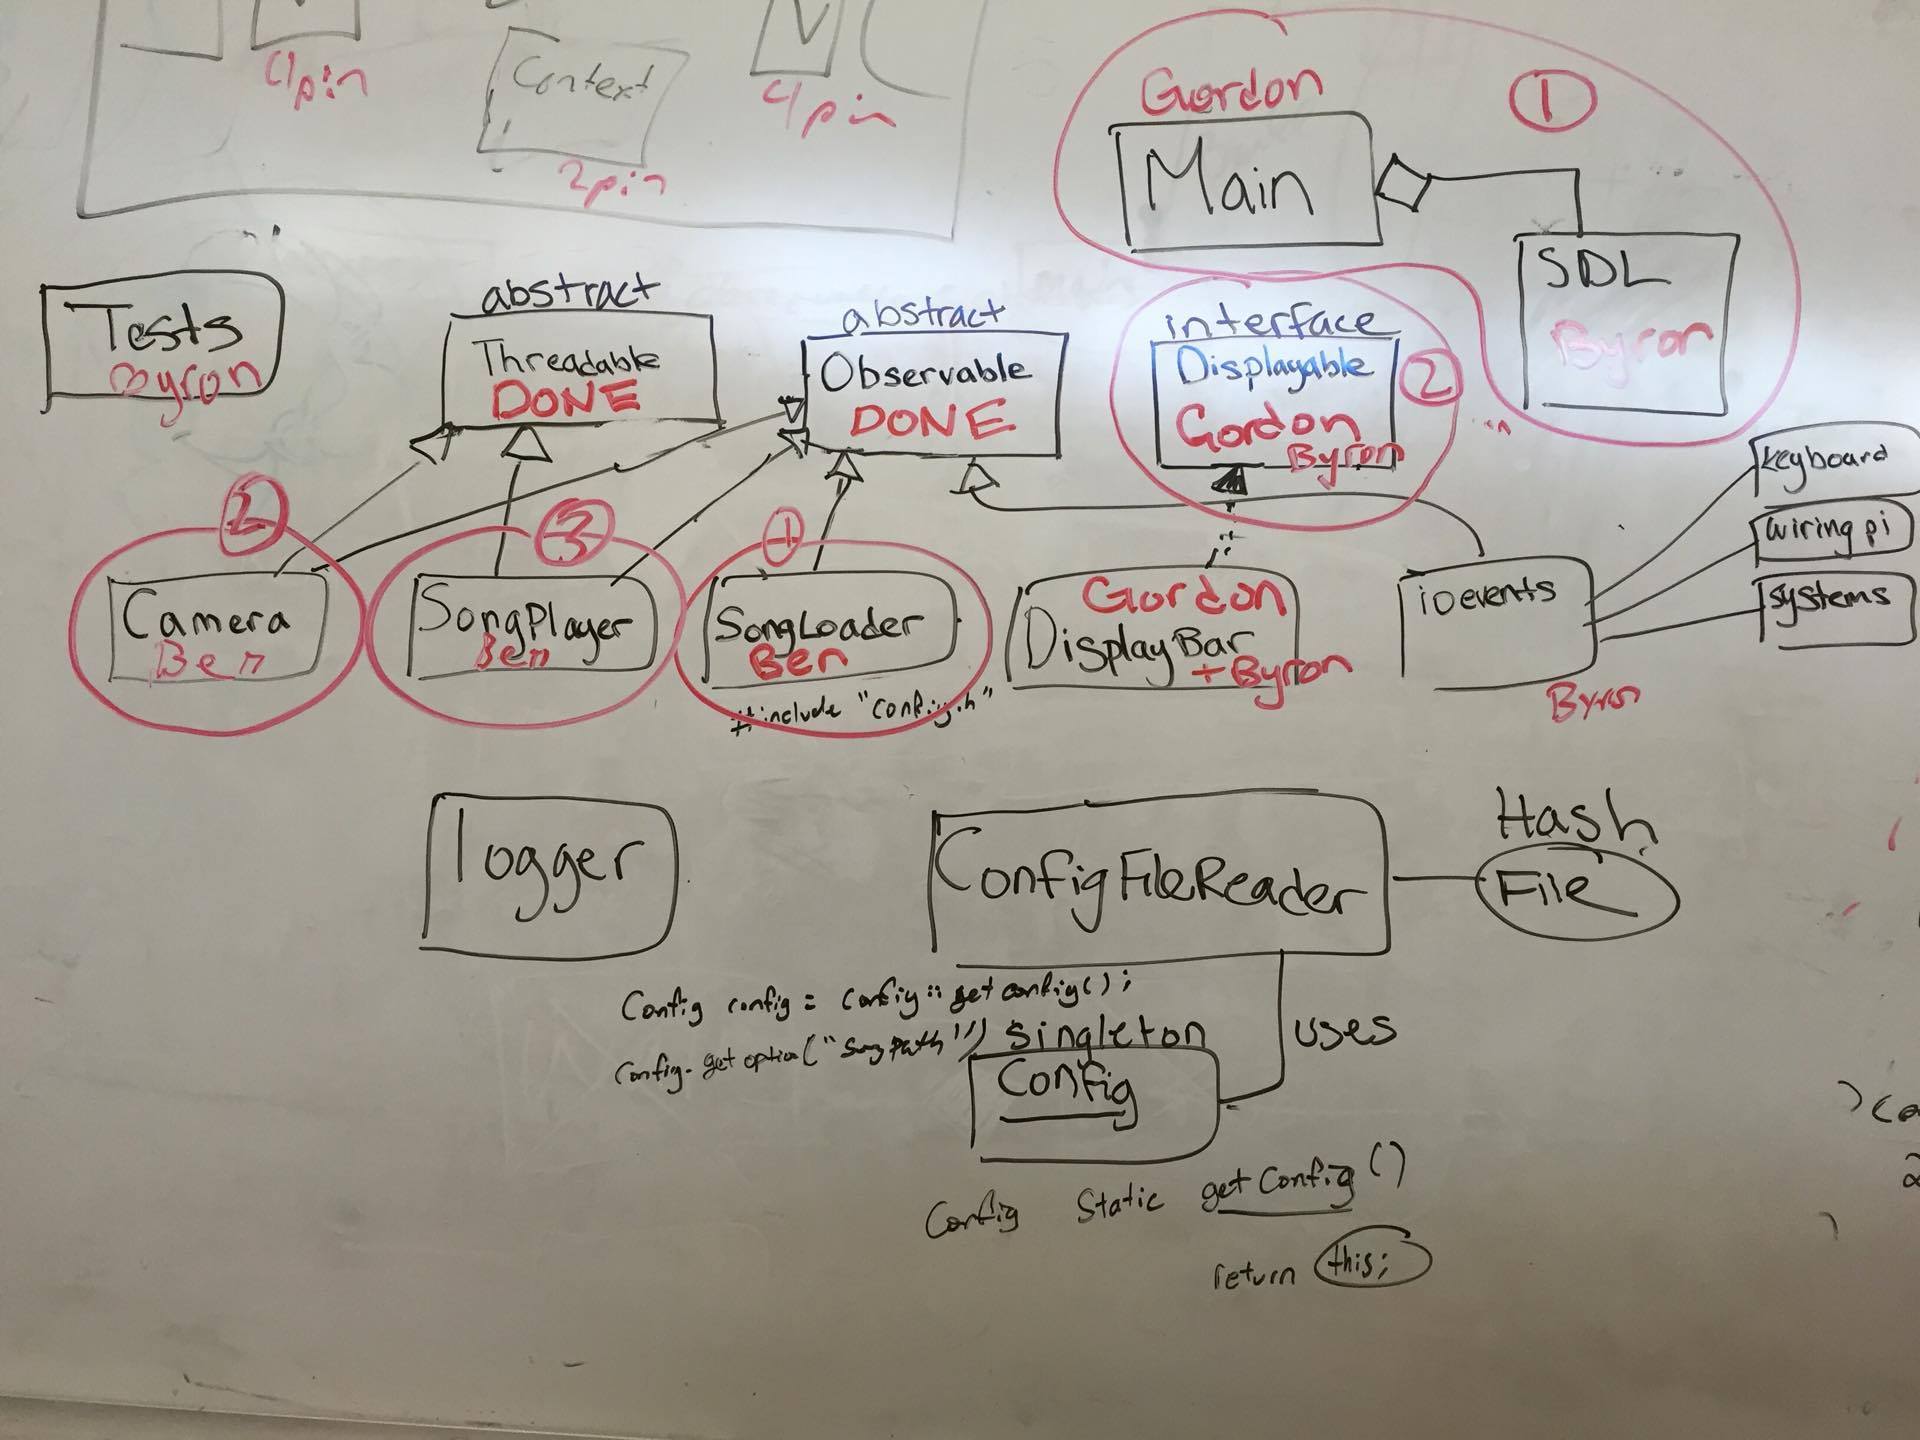 4pin
Context
4pin
2pin
Gordon
1
Main
SDL
Byron
Tests
Byron
abstract
Threadable
DONE
abstract
Observable
DONE
interface
Displayable
Gordon
Byron
2
keyboard
wiring pi
systems
2
3
1
Camera
Ben
SongPlayer
Ben
SongLoader
Ben
#include "config.h"
Gordon
DisplayBar
+ Byron
ioevents
Byron
logger
ConfigFileReader
Hash
File
Config config = Config::getconfig();
Config.getoption("songpath")
singleton
Config
uses
Config Static getConfig()
return this;